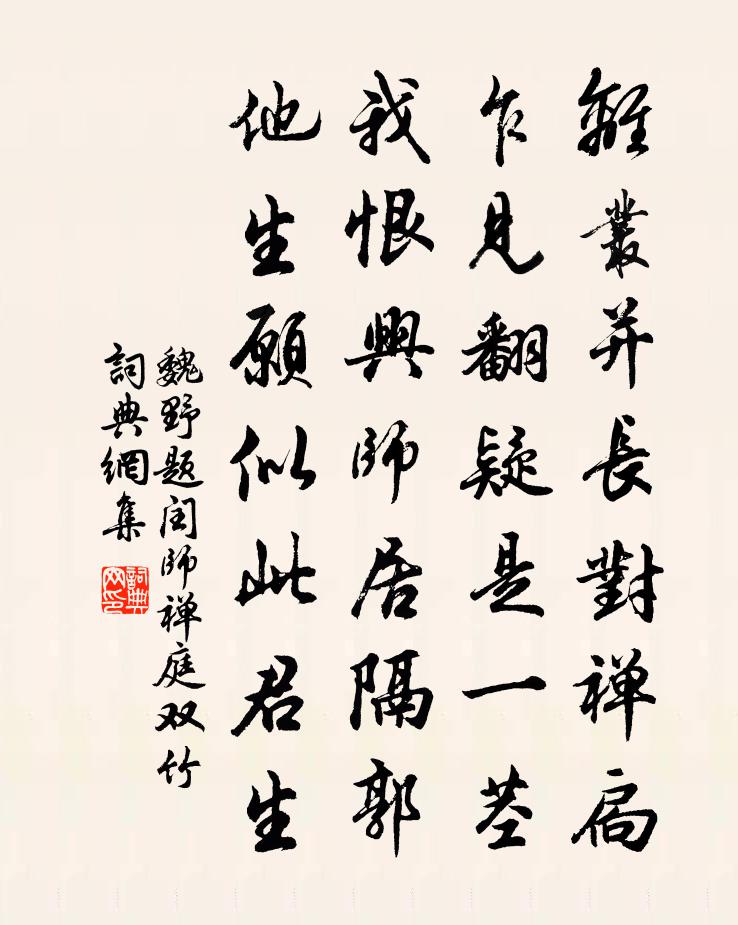 離叢并長對禅扃
乍見翻疑是一莖
我恨與師居隔郭
他生願似此君生
魏野题闰師禅庭双竹
詞典網集
詞典网印